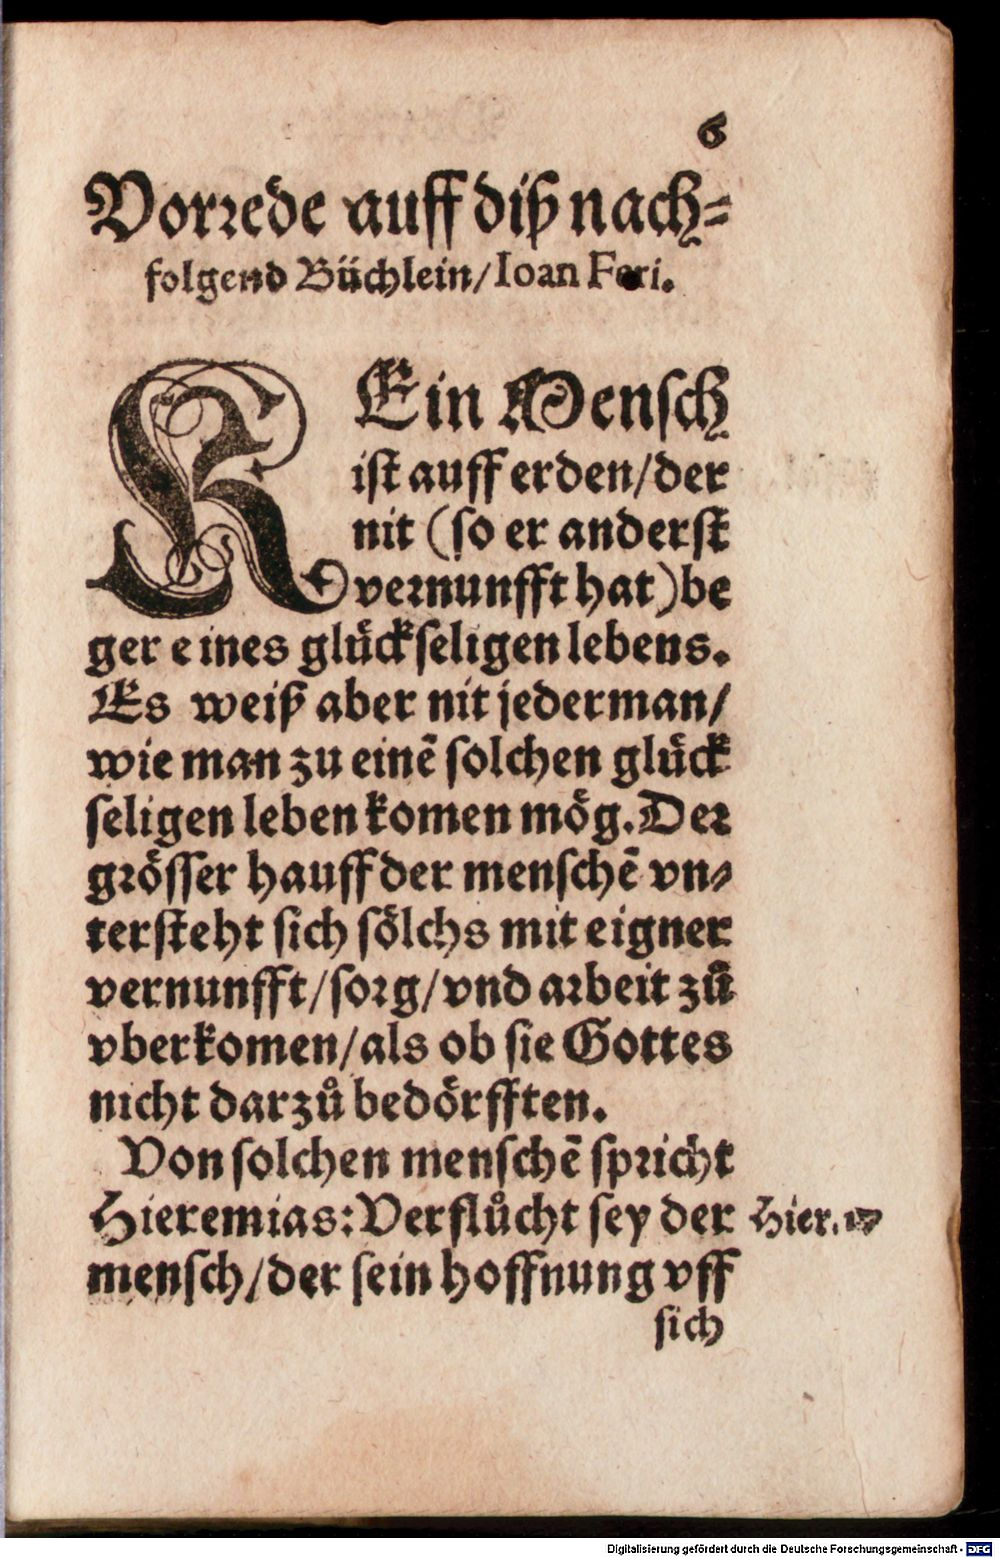 6
Vorrede auff diß nach-
folgend Büchlein/Ioan Feri.
KEin Mensch
ist auff erden/der
nit (so er anderst
vernunfft hat) be
ger eines glückseligen lebens.
Es weiß aber nit jederman/
wie man zu einē solchen glück
seligen leben komen mög. Der
grösser hauff der menschē vn-
tersteht sich sölchs mit eigner
vernunfft/sorg/vnd arbeit zů
vberkomen/als ob sie Gottes
nicht darzů bedörfften.
Von solchen menschē spricht
Hieremias: Verflůcht sey der
Hier. 17
mensch/der sein hoffnung vff
sich
Digitalisierung gefördert durch die Deutsche Forschungsgemeinschaft - DFG